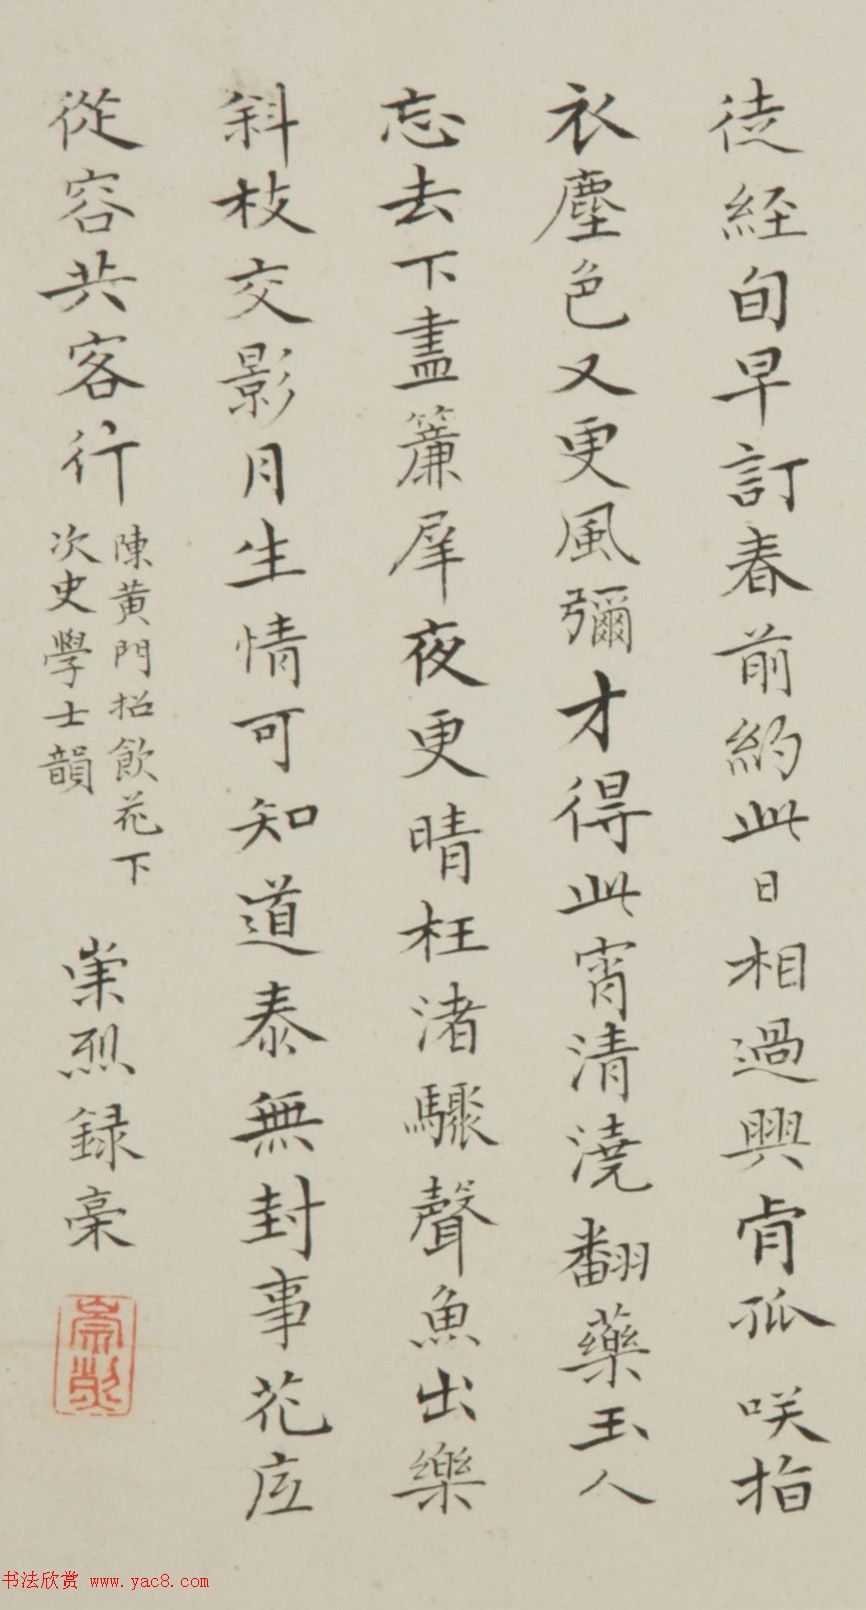 徒經旬早訂春前約此日相過興肯孤咲指
衣塵色又更風彌才得此宵清澆翻藥玉人
忘去下盡簾犀夜更晴枉渚驟聲魚出樂
斜枝交影月生情可知道泰無封事花底
從容共客行
陳黃門招飲花下
次史學士韻
崇烈録稾
崇烈
书法欣赏 www.yac8.com